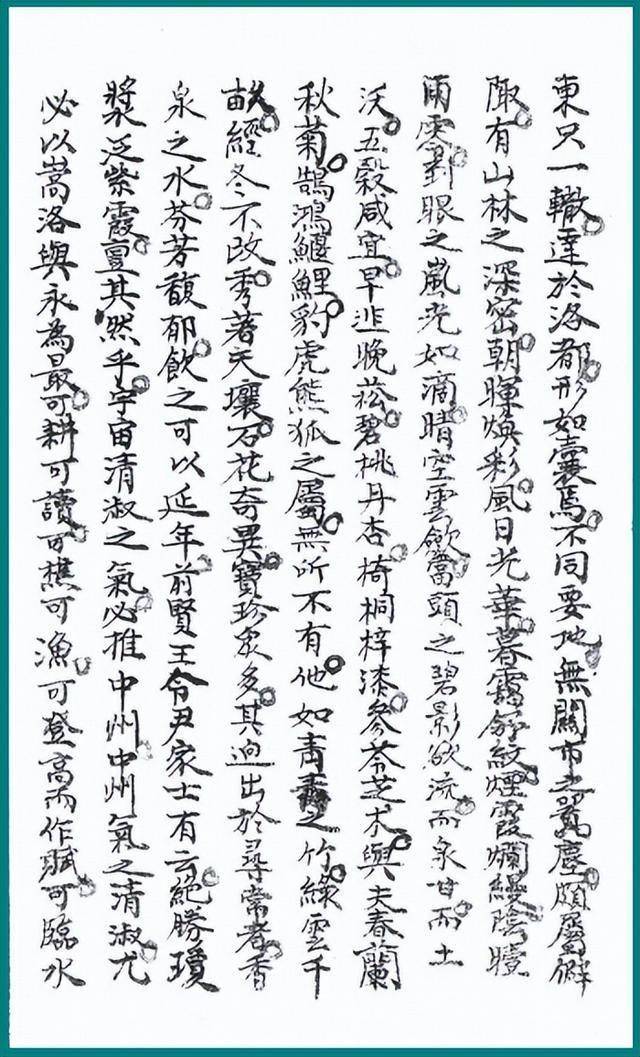 東只一轍達於洛都形如囊焉不同要地無關市之囂塵頗屬僻
陬有山林之深密朝暉煥彩風日光華暮靄紋煙霞斕縵陰曀
雨零對眼之嵐光如滴晴空雲歛當頭之碧影欲流而泉甘而土
沃五穀咸宜早韭晚菘碧桃丹杏椅桐梓漆參苓芝朮與夫春蘭
秋菊鵠鴻鰋鯉豹虎熊狐之屬無所不有他如青青之竹綠雲千
畝經冬不改秀著天壤石花奇異寶珍衆多其逈出於尋常者香
泉之水芬芳馥郁飲之可以延年前賢王令尹家士有云絕勝瓊
漿泛紫霞亶其然乎宇宙清淑之氣必推中州中州氣之清淑尤
必以嵩洛與永為最可耕可讀可樵可漁可登高而作賦可臨水